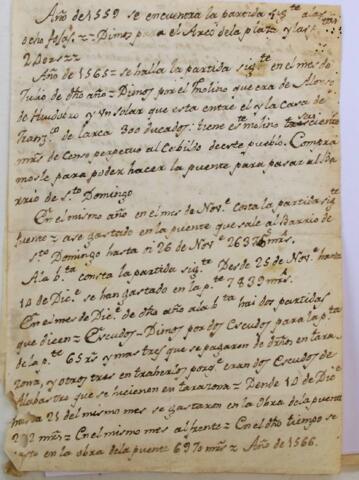 Año de 1559 se encuentra la partida sig.te a las
ocho fojas z z Dimos para el Arco de la plata y las
2 Dorszz
Año de 1565 = se halla la partida sig.te en el mes de
Julio de dho año = Dimos por el molino que era de Alonso
de y Vn solar que esta entre el y la Casa de
Fran.co de Larca 300 ducados: tiene este molino
mrs de Censo perpetuo al Cabildo de este pueblo. Compra
mosle para poder hacer la puente para pasar al Ba
rrio de S.to Domingo
En el mismo año en el mes de Nov.e Costa la partida sig.te
fuente z a se gastado en la puente que sale al Barrio de
S.to Domingo hasta ii 26 de Nov.e mrs.
A la b.ta consta la partida sig.te Desde 25 de Nov.e hasta
10 de Dic.e se han gastado en la p.te 7839 mrs
En el mes de Dic.e de dho año a la b.ta hai dos partidas
que dicen z Escudos = Dimos por dos Escudos para la p.ta
de la p.te 65 rs y mas tres que se pagaron de en tara
zona, y otros tres en traherlos porq. eran dos Escudos de
Alabastro que se hicieron en tarazona z Dende 10 de Dic.e
hasta 21 del mismo mes se gastaron en la obra de la puente
292 mrs z En el mismo mes al frente z En el dho tiempo se
gasto en la obra de la puente 6970 mrs z Año de 1566.